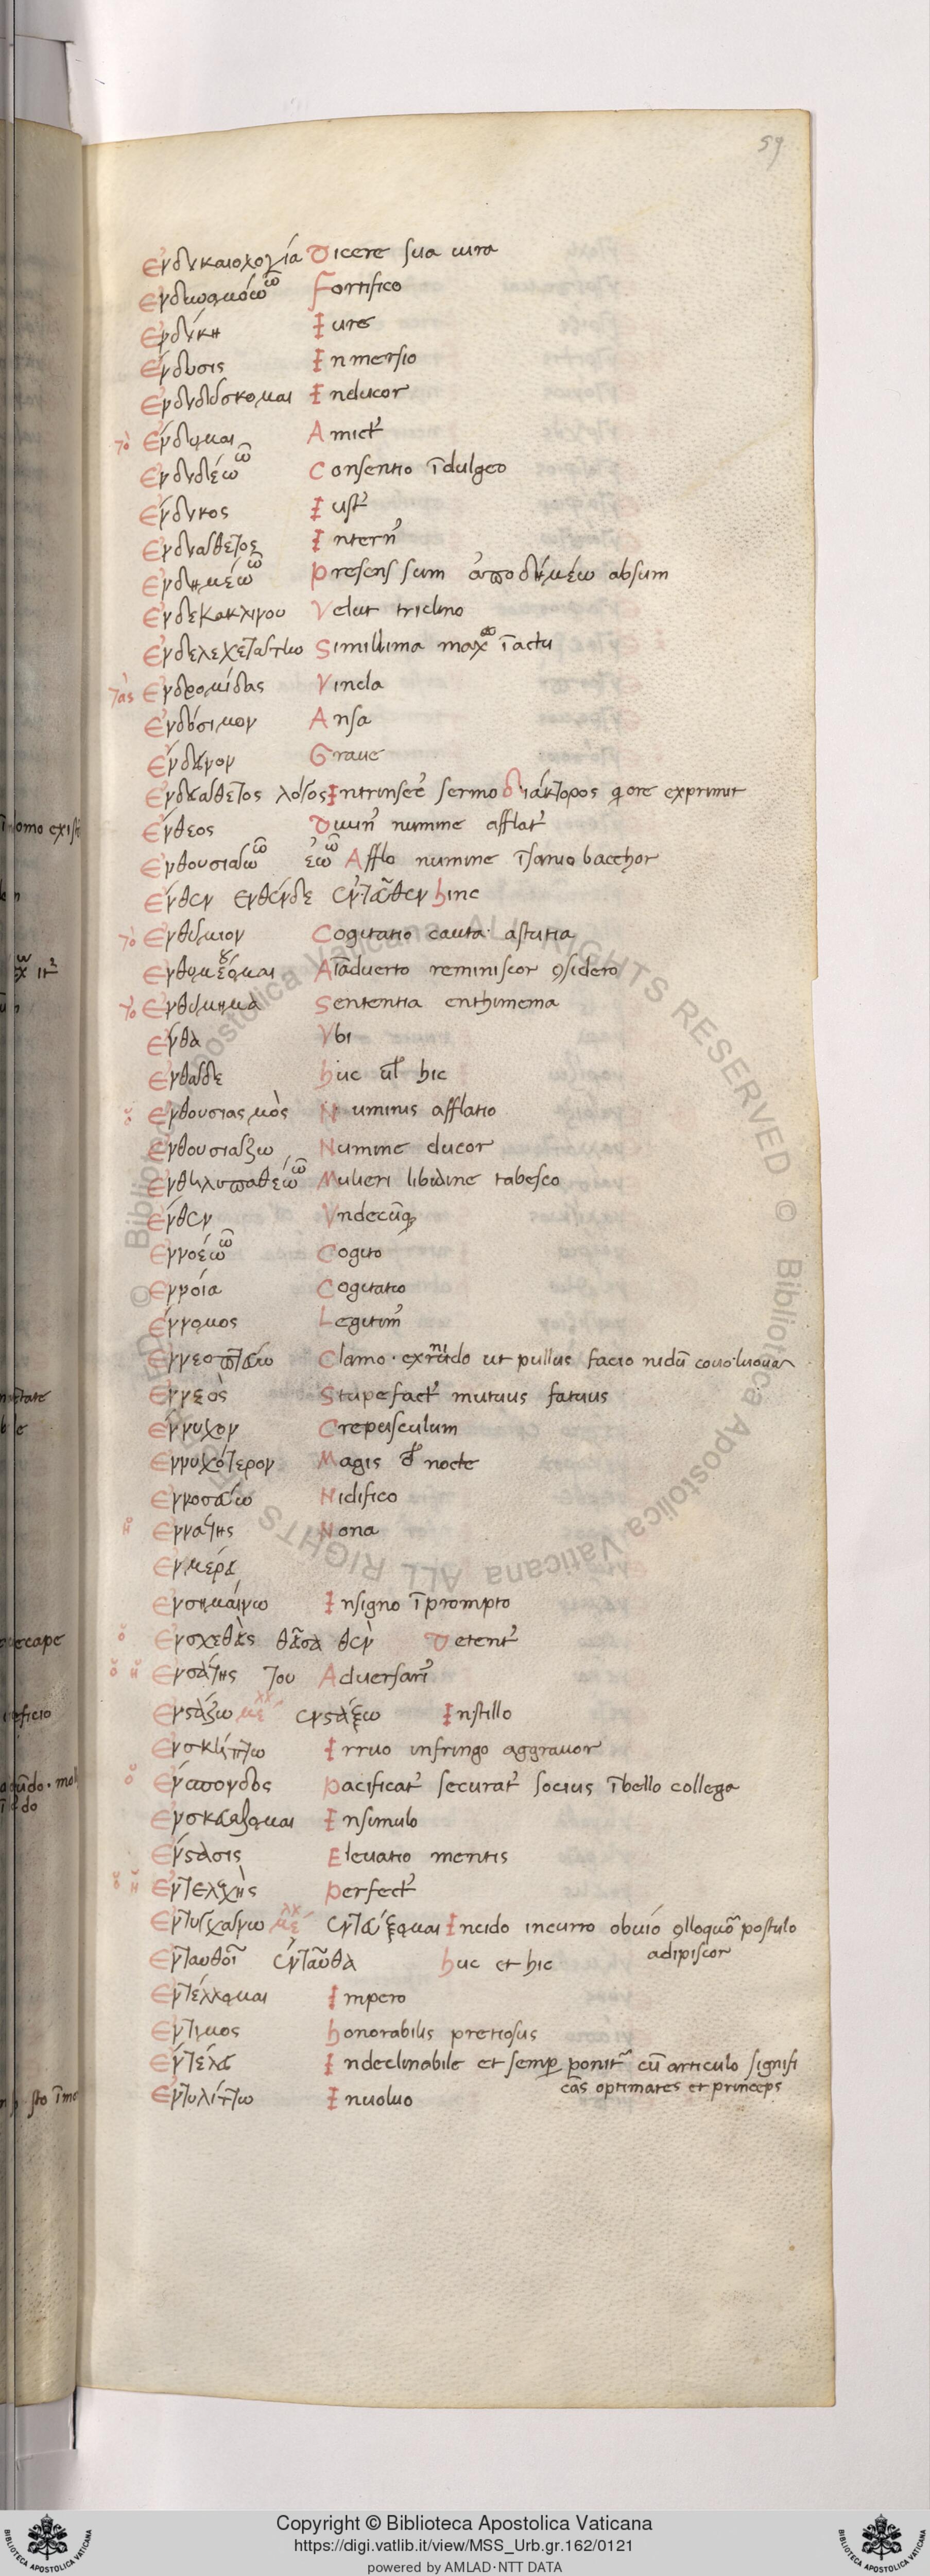 59
Ἐνδικαιολογία Dicere sua iura
Ἐνδυναμόω ῶ Fortifico
Ἐνδίκη Iure
Ἔνδυσις Inmersio
Ἐνδιδύσκομαι Inducor
τὸ Ἔνδυμα Amict᾽
Ἐνδιδέω ῶ Consentio īdulgeo
Ἔνδικος Iust᾽
Ἐνδιάθετος Intern᾽
Ἐνδημέω ῶ Presens sum ἀποδημέω absum
Ἐνδεκακλίνου Velut triclino
Ἐνδελεχεῖ Simillima īactu
τὰς Ἐνδρομίδας Vincla
Ἐνδόσιμον Ansa
Ἔνδινον Graue
Ἐνδιάθετος λόγος Intrinsec᾽ sermo διάκτορος q̄ ore exprimit
Ἔνθεος Diuin᾽ numine afflat᾽
Ἐνθουσιάω ῶ έω ῶ Afflo numine īsanio bacchor
Ἔνθεν ἐνθένδε ἐνταῦθεν hinc
τὸ Ἐνθύμιον Cogitatio cauta· astutia
Ἐνθυμέομαι Aīaduerto reminiscor ꝯsidero
τὸ Ἐνθύμημα Sententia enthimema
Ἔνθα Vbi
Ἐνθάδε huc ul̄ hic
ὁ Ἐνθουσιασμὸς Numinis afflatio
Ἐνθουσιάζω Numine ducor
Ἐνθηλυπαθέω ῶ Mulieri libidine tabesco
Ἔνθεν Vndecūq;
Ἐννοέω ῶ Cogito
Ἐννοία Cogitatio
Ἔννομος Legitim᾽
Ἐννεοττεύω Clamo· ut pullus facio nidū
Ἐννεὸς Stupefact᾽ mutuus fatuus
Ἔννυχον Crepusculum
Ἐννυχότερον Magis d᾽ nocte
Ἐννοσσεύω Nidifico
ἡ Ἐννάτης Nona
Ἐνημέρα
Ἐνσημαίνω Insigno īprompto
ὁ Ἐνσχεθεὶς θεῖσα θὲν Detent᾽
ὁ ἡ Ἐνστάτης του Aduersari᾽
Ἐνστάζω μέλ ἐνστάξω Instillo
Ἐνσκήπτω Irruo infringo aggrauor
ὁ Ἐνσπονδος pacificat᾽ securat᾽ socius ībello collega
Ἐνσκευάζομαι Insimulo
Ἔνστασις Eleuatio mentis
ὁ ἡ Ἐντελεχὴς perfect᾽
Ἐντυγχάνω μέλ ἐντεύξομαι Incido incurro obuio ꝯlloquor᾽ postulo
adipiscor
Ἐνταυθοῖ ἐνταῦθα huc et hic
Ἐντέλλομαι Impero
Ἔντιμος honorabilis pretiosus
Ἐντέλει Indeclinabile et semp ponit᾽ cū articulo signifi
cās optimates et princeps
Ἐντυλίττω Inuoluo
Copyright © Biblioteca Apostolica Vaticana
https://digi.vatlib.it/view/MSS_Urb.gr.162/0121
powered by AMLAD·NTT DATA